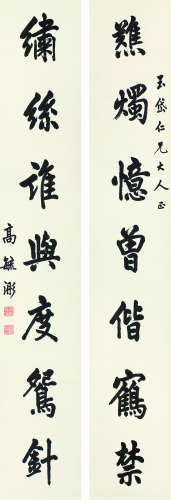 玉岱仁兄大人正
爇燭憶曾偕鶴禁
繡絲誰與度鴛針
高毓浵